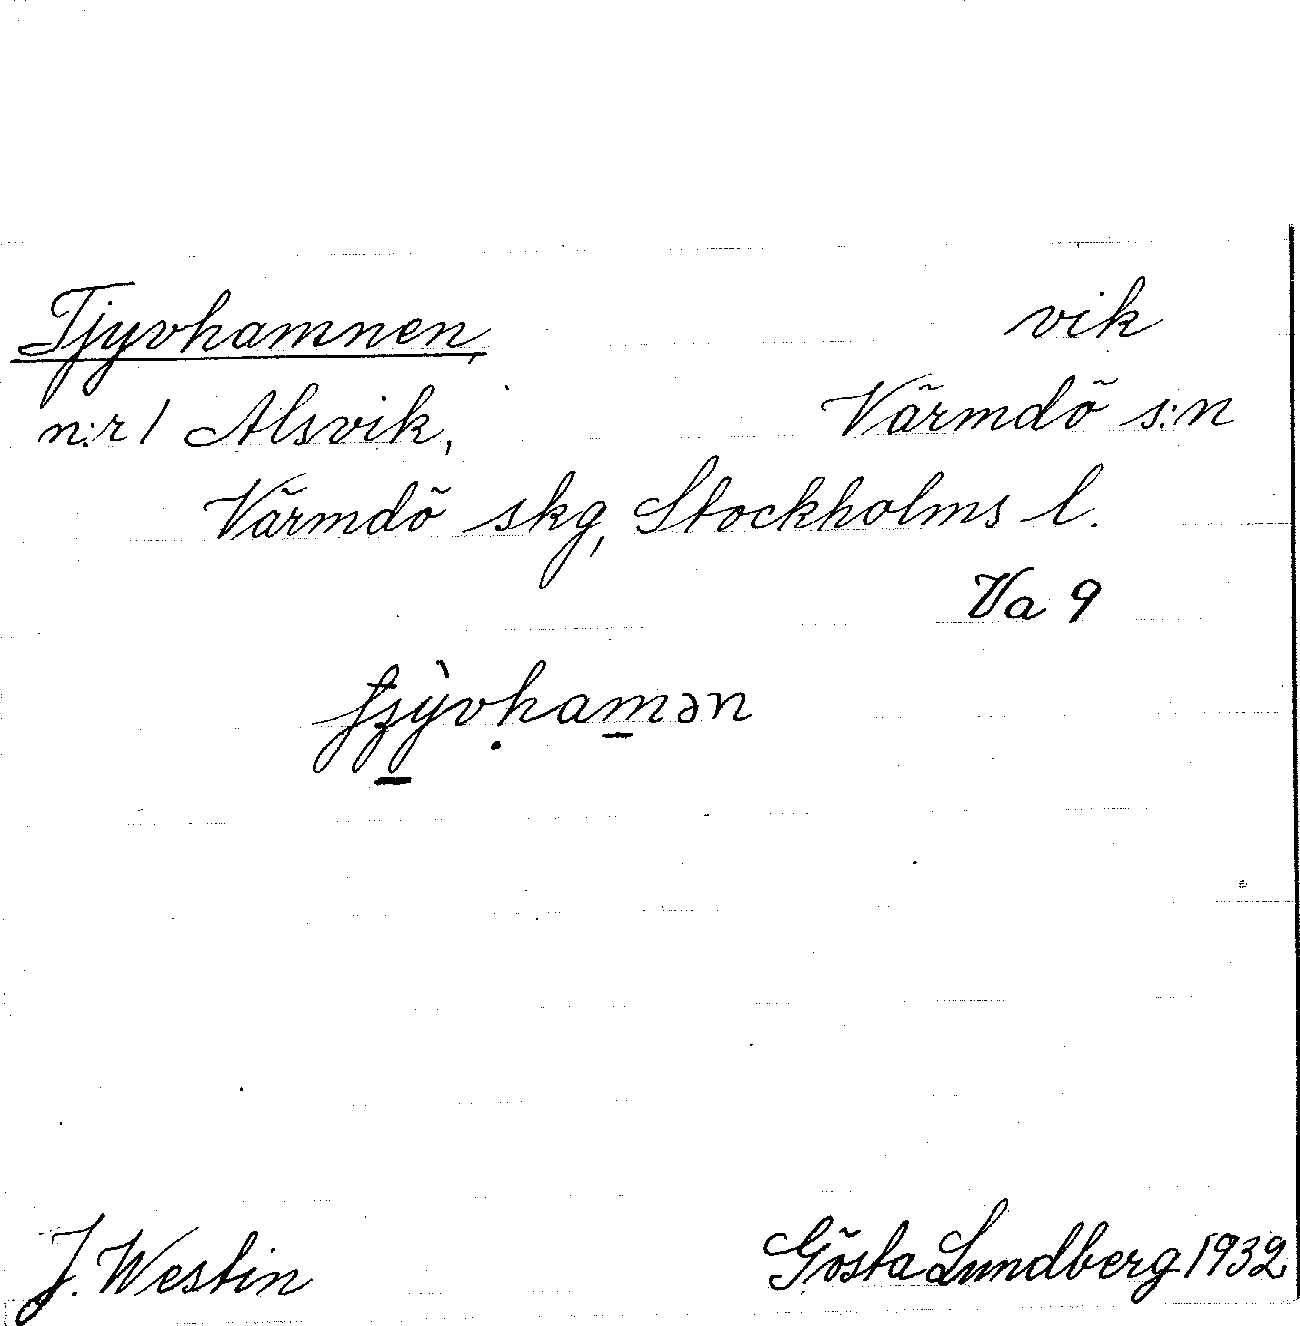 Tjyvhamnen, vik
n:r 1 Alsvik, Värmdö s:n
Värmdö skg, Stockholms l.
Va 9
J. Westin Gösta Lundberg 1932